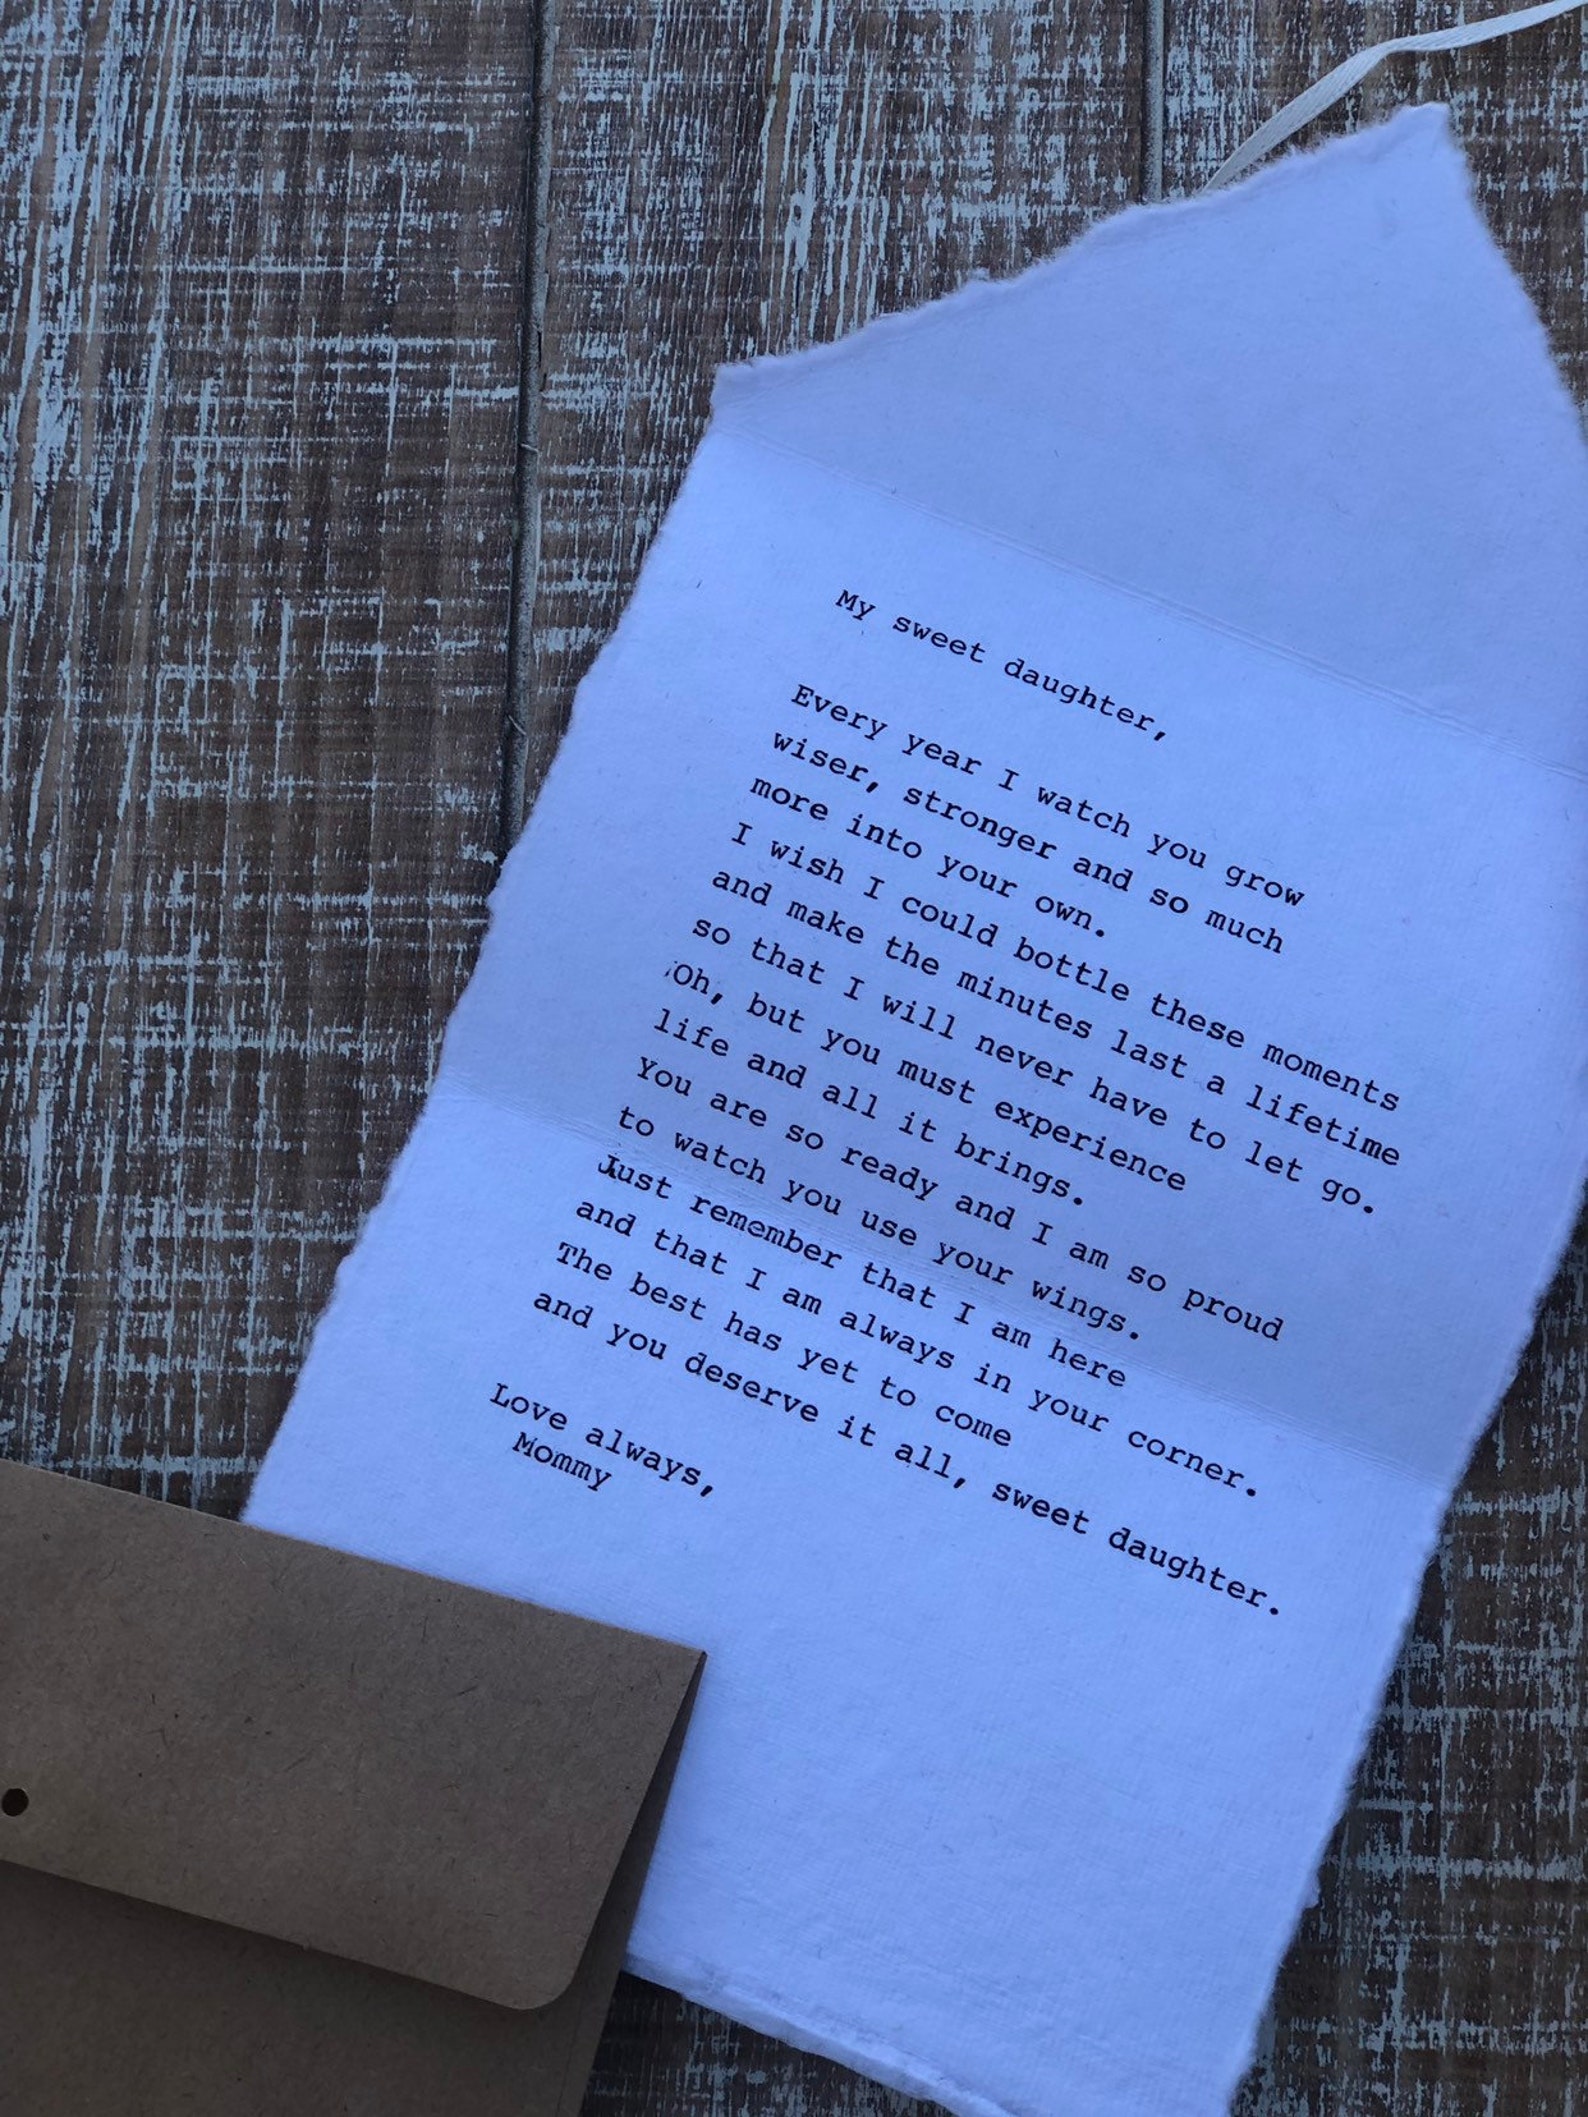 My sweet daughter,
Every year I watch you grow
wiser, stronger and so much
more into your own.
I wish I could bottle these moments
and make the minutes last a lifetime
so that I will never have to let go.
Oh, but you must experience
life and all it brings.
You are so ready and I am so proud
to watch you use your wings.
Just remember that I am here
and that I am always in your corner.
The best has yet to come
and you deserve it all, sweet daughter.
Love always,
Mommy